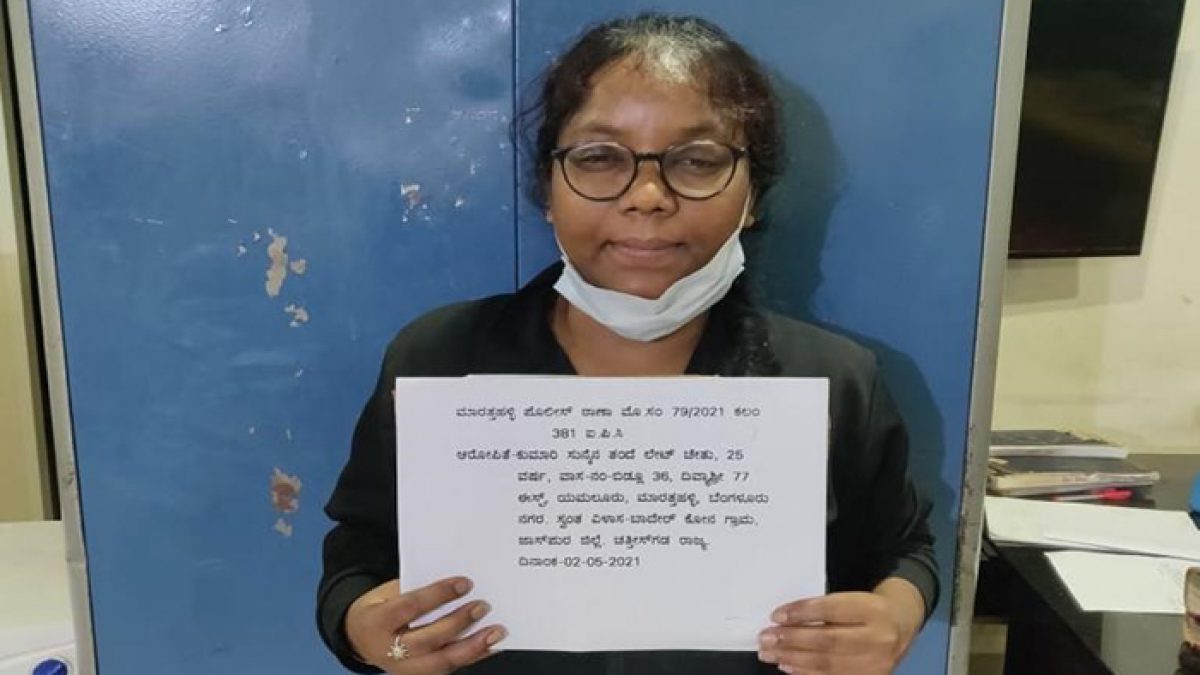 ಮಾರತ್ತಹಳ್ಳಿ ಪೊಲೀಸ್ ಠಾಣಾ ಮೊ.ಸಂ 79/2021 ಕಲಂ
381 ಐ.ಪಿ.ಸಿ
ಆರೋಪಿತೆ-ಕುಮಾರಿ ಸುನೈನ ತಂದೆ ಲೇಟ್ ಚೇತು, 25
ವರ್ಷ, ವಾಸ-ನಂ-ಬಿಡ್ಲೂ 36, ದಿವ್ಯಾಶ್ರೀ 77
ಈಸ್ಟ್, ಯಮಲೂರು, ಮಾರತ್ತಹಳ್ಳಿ, ಬೆಂಗಳೂರು
ನಗರ. ಸ್ವಂತ ವಿಳಾಸ-ಬಾದೇರ್ ಕೋನ ಗ್ರಾಮ,
ಜಾಸ್‌ಪುರ ಜಿಲ್ಲೆ. ಚತ್ತೀಸ್‌ಗಡ ರಾಜ್ಯ
ದಿನಾಂಕ-02-05-2021